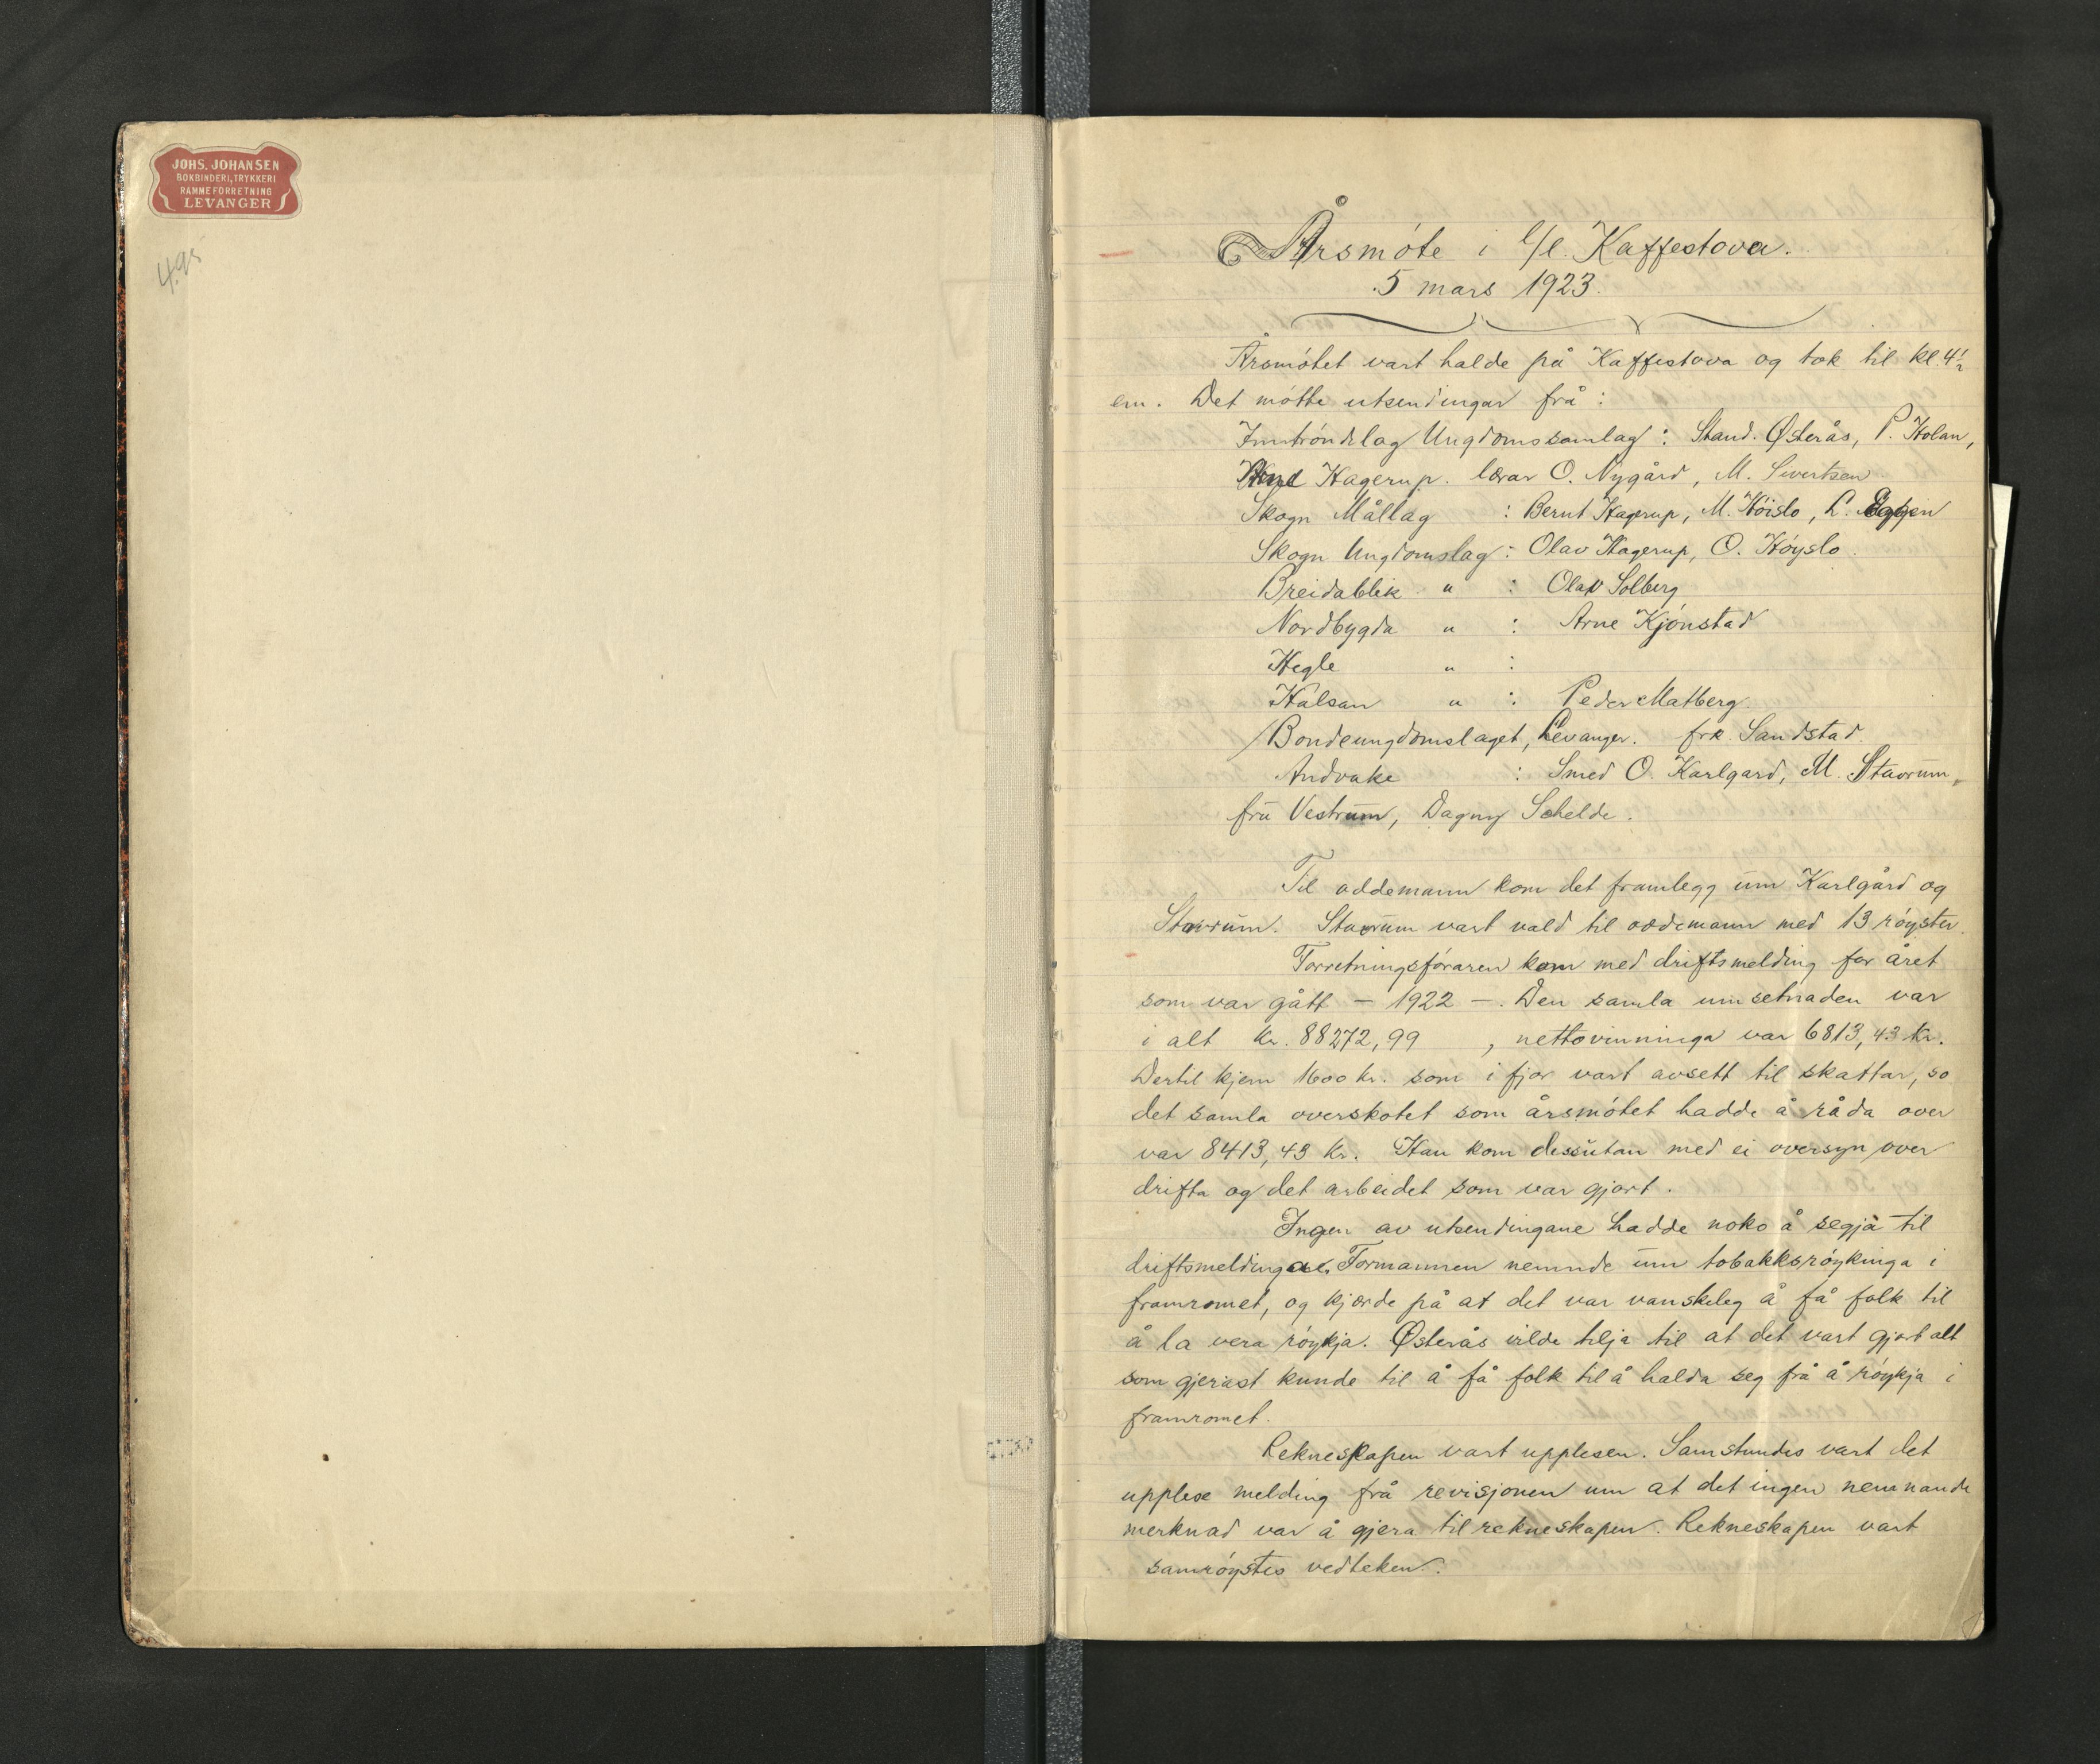 JOHS. JOHANSEN
BOKBINDERI, TRYKKERI
RAMMEFORRETNING
LEVANGER
4.95
Årsmóte i l/l. Kaffestova.
5 mars 1923.
Årsmótet vart halde på Kaffestova og tok til kl. 4½
em. Det mótte utsendingar frå:
Inntróndelag Ungdomssamlag: Stand. Østerås, P. Holan,
Hagerup. lærar O. Nygård, M. Sivertsen
Skogn Mållag : Bernt Hagerup, M. Hóislo, L. Eggen
Skogn Ungdomslag: Olav Hagerup, O. Hóyslo.
Breidablik " : Olav Solberg
Nordbygda " : Arne Kjónstad
Hegle " :
Halsan " : Peder Matberg.
Bondeungdomslaget, Levanger. frk. Sandstad.
Andvake : Smed O. Karlgard, M. Stavrum,
frū Vestrūm, Dagny Schelde.
Til oddemann kom det framlegg ūm Karlgård og
Stavrūm. Stavrūm vart vald til oddemann med 13 róyster.
Forretningsfóraren kom med driftsmelding for året
som var gått - 1922 -. Den samla umsetnaden var
i alt kr. 88272,99 , nettovinninga var 6813,43 kr.
Dertil kjem 1600 kr. som i fjor vart avsett til skattar, so
det samla overskotet som årsmótet hadde å råda over
var 8413,43 kr. Han kom dessūtan med ei oversyn over
drifta og det arbeidet som var gjort.
Ingen av utsendingane hadde noko å segja til
driftsmeldinga. Formannen nemnde ūm tobakksróykinga i
framromet, og kjærde på at det var vanskeleg å få folk til
å la vera róykja. Østerås vilde tilja til at det vart gjort alt
som gjerast kunde til å få folk til å halda seg frå å róykja i
framromet.
Rekneskapen vart upplesen. Samstundes vart det
upplese melding frå revisjonen um at det ingen nemnande
merknad var å gjera til rekneskapen. Rekneskapen vart
samróystes vedteken.